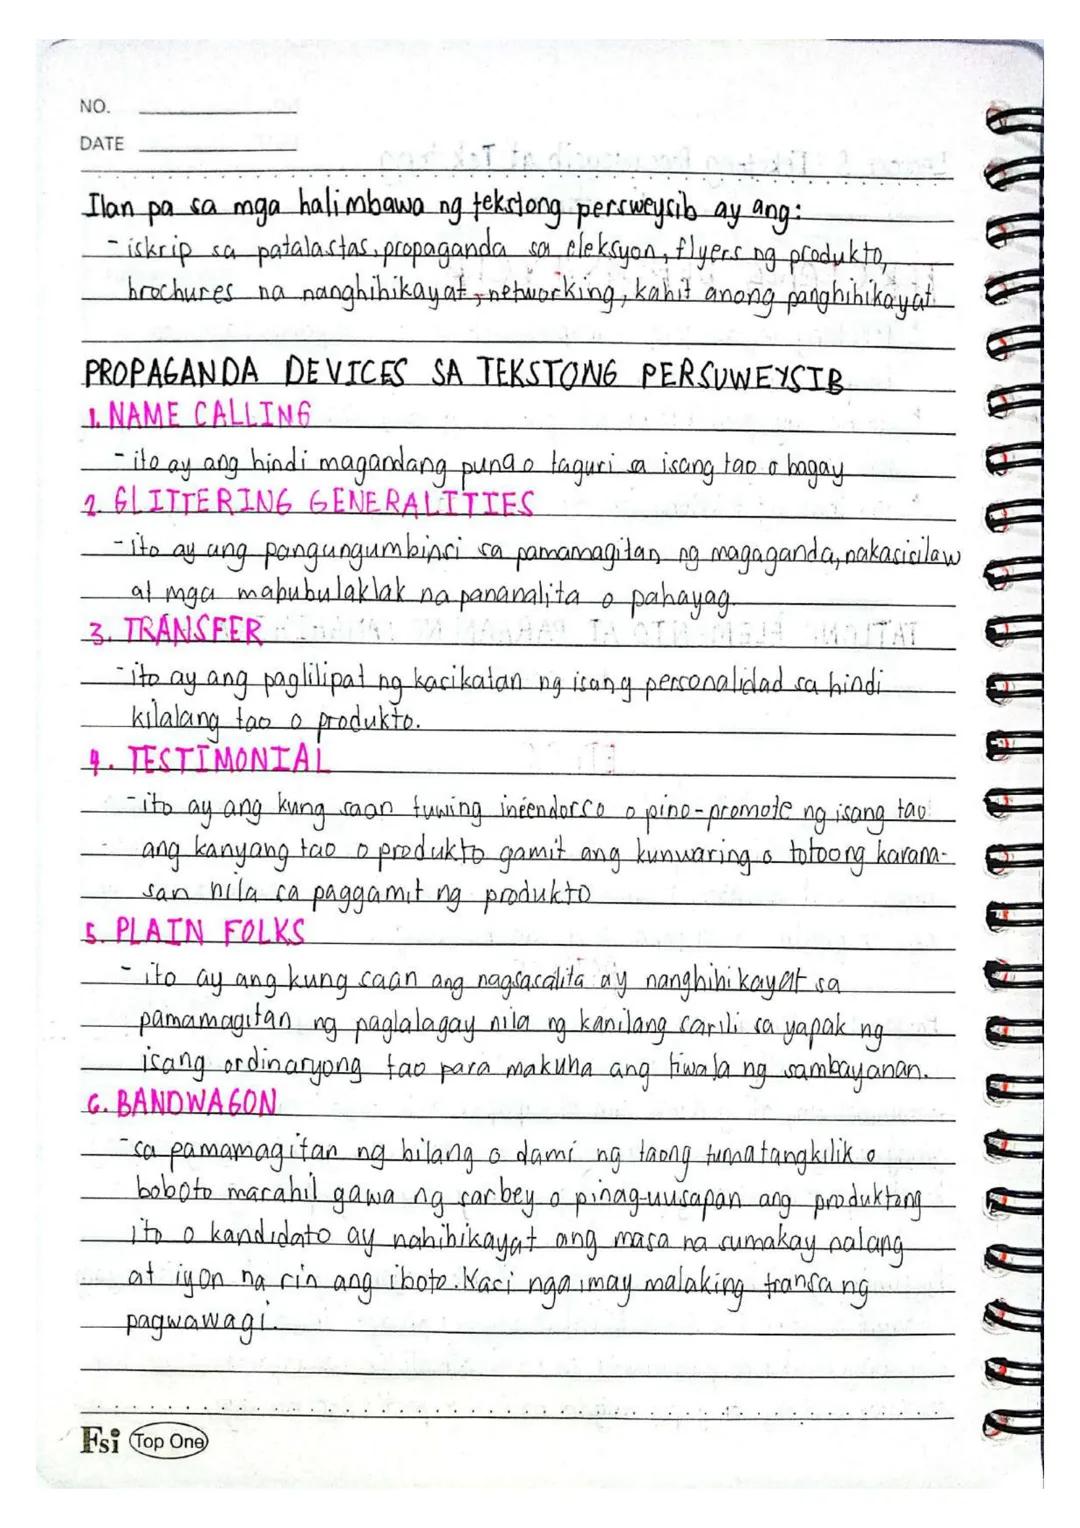 NO.
DATE
Ilan pa sa mga halimbawa ng tekstong persweysib ay ang:
- iskrip sa patalastas, propaganda sa eleksyon, flyers ng produkto,
brochures na nanghihikayat, networking, kahit anong panghihikayat
PROPAGANDA DEVICES SA TEKSTONG PERSUWEYSIB
1. NAME CALLING
- ito ay ang hindi magandang puna o taguri sa isang tao o bagay
2. GLITTERING GENERALITIES
- ito ay ang pangungumbinsi sa pamamagitan ng magaganda, nakasisilaw
at mga mabubulaklak na pananalita o pahayag.
3. TRANSFER
- ito ay ang paglilipat ng kasikatan ng isang personalidad sa hindi
kilalang tao o produkto.
4. TESTIMONIAL
- ito ay ang kung saan tuwing ineendorso o pino-promote ng isang tao
ang kanyang tao o produkto gamit ang kunwaring o totoong karana-
san nila sa paggamit ng produkto
5. PLAIN FOLKS
- ito ay ang kung saan ang nagsasalita ay nanghihikayat sa
pamamagitan ng paglalagay nila ng kanilang sarili sa yapak ng
isang ordinaryong tao para makuha ang tiwala ng sambayanan.
6. BANDWAGON
- sa pamamagitan ng bilang o dami ng taong tumatangkilik o
boboto marahil gawa ng sarbey o pinag-uusapan ang produktong
ito o kandidato ay nahihikayat ang masa na sumakay nalang
at iyon na rin ang iboto. Kasi nga may malaking transa ng
pagwawagi.
Fsi Top One